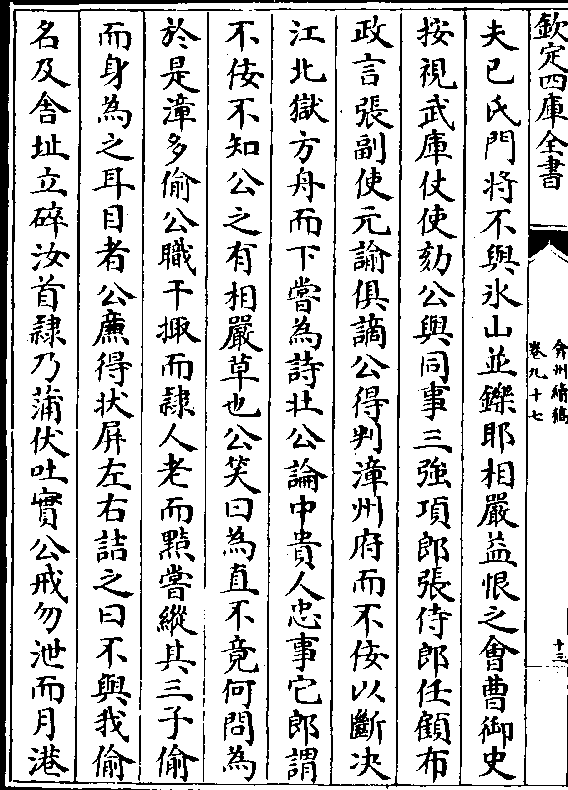 欽定四庫全書
弇州續稿
卷九十七
十三
夫已氏門將不與氷山並鑠耶相嚴益恨之會曹御史
按視武庫仗使劾公與同事三強項郎張侍郎任顧布
政言張副使元諭俱謫公得判漳州府而不佞以斷决
江北獄方舟而下嘗為詩壮公論中貴人忠事它郎謂
不佞不知公之有相嚴草也公笑曰為直不竟何問為
於是漳多偷公職干掫而隷人老而黠嘗縱其三子偷
而身為之耳目者公㢘得状屏左右詰之曰不與我偷
名及舍址立碎汝首隷乃蒲伏吐實公戒勿泄而月港